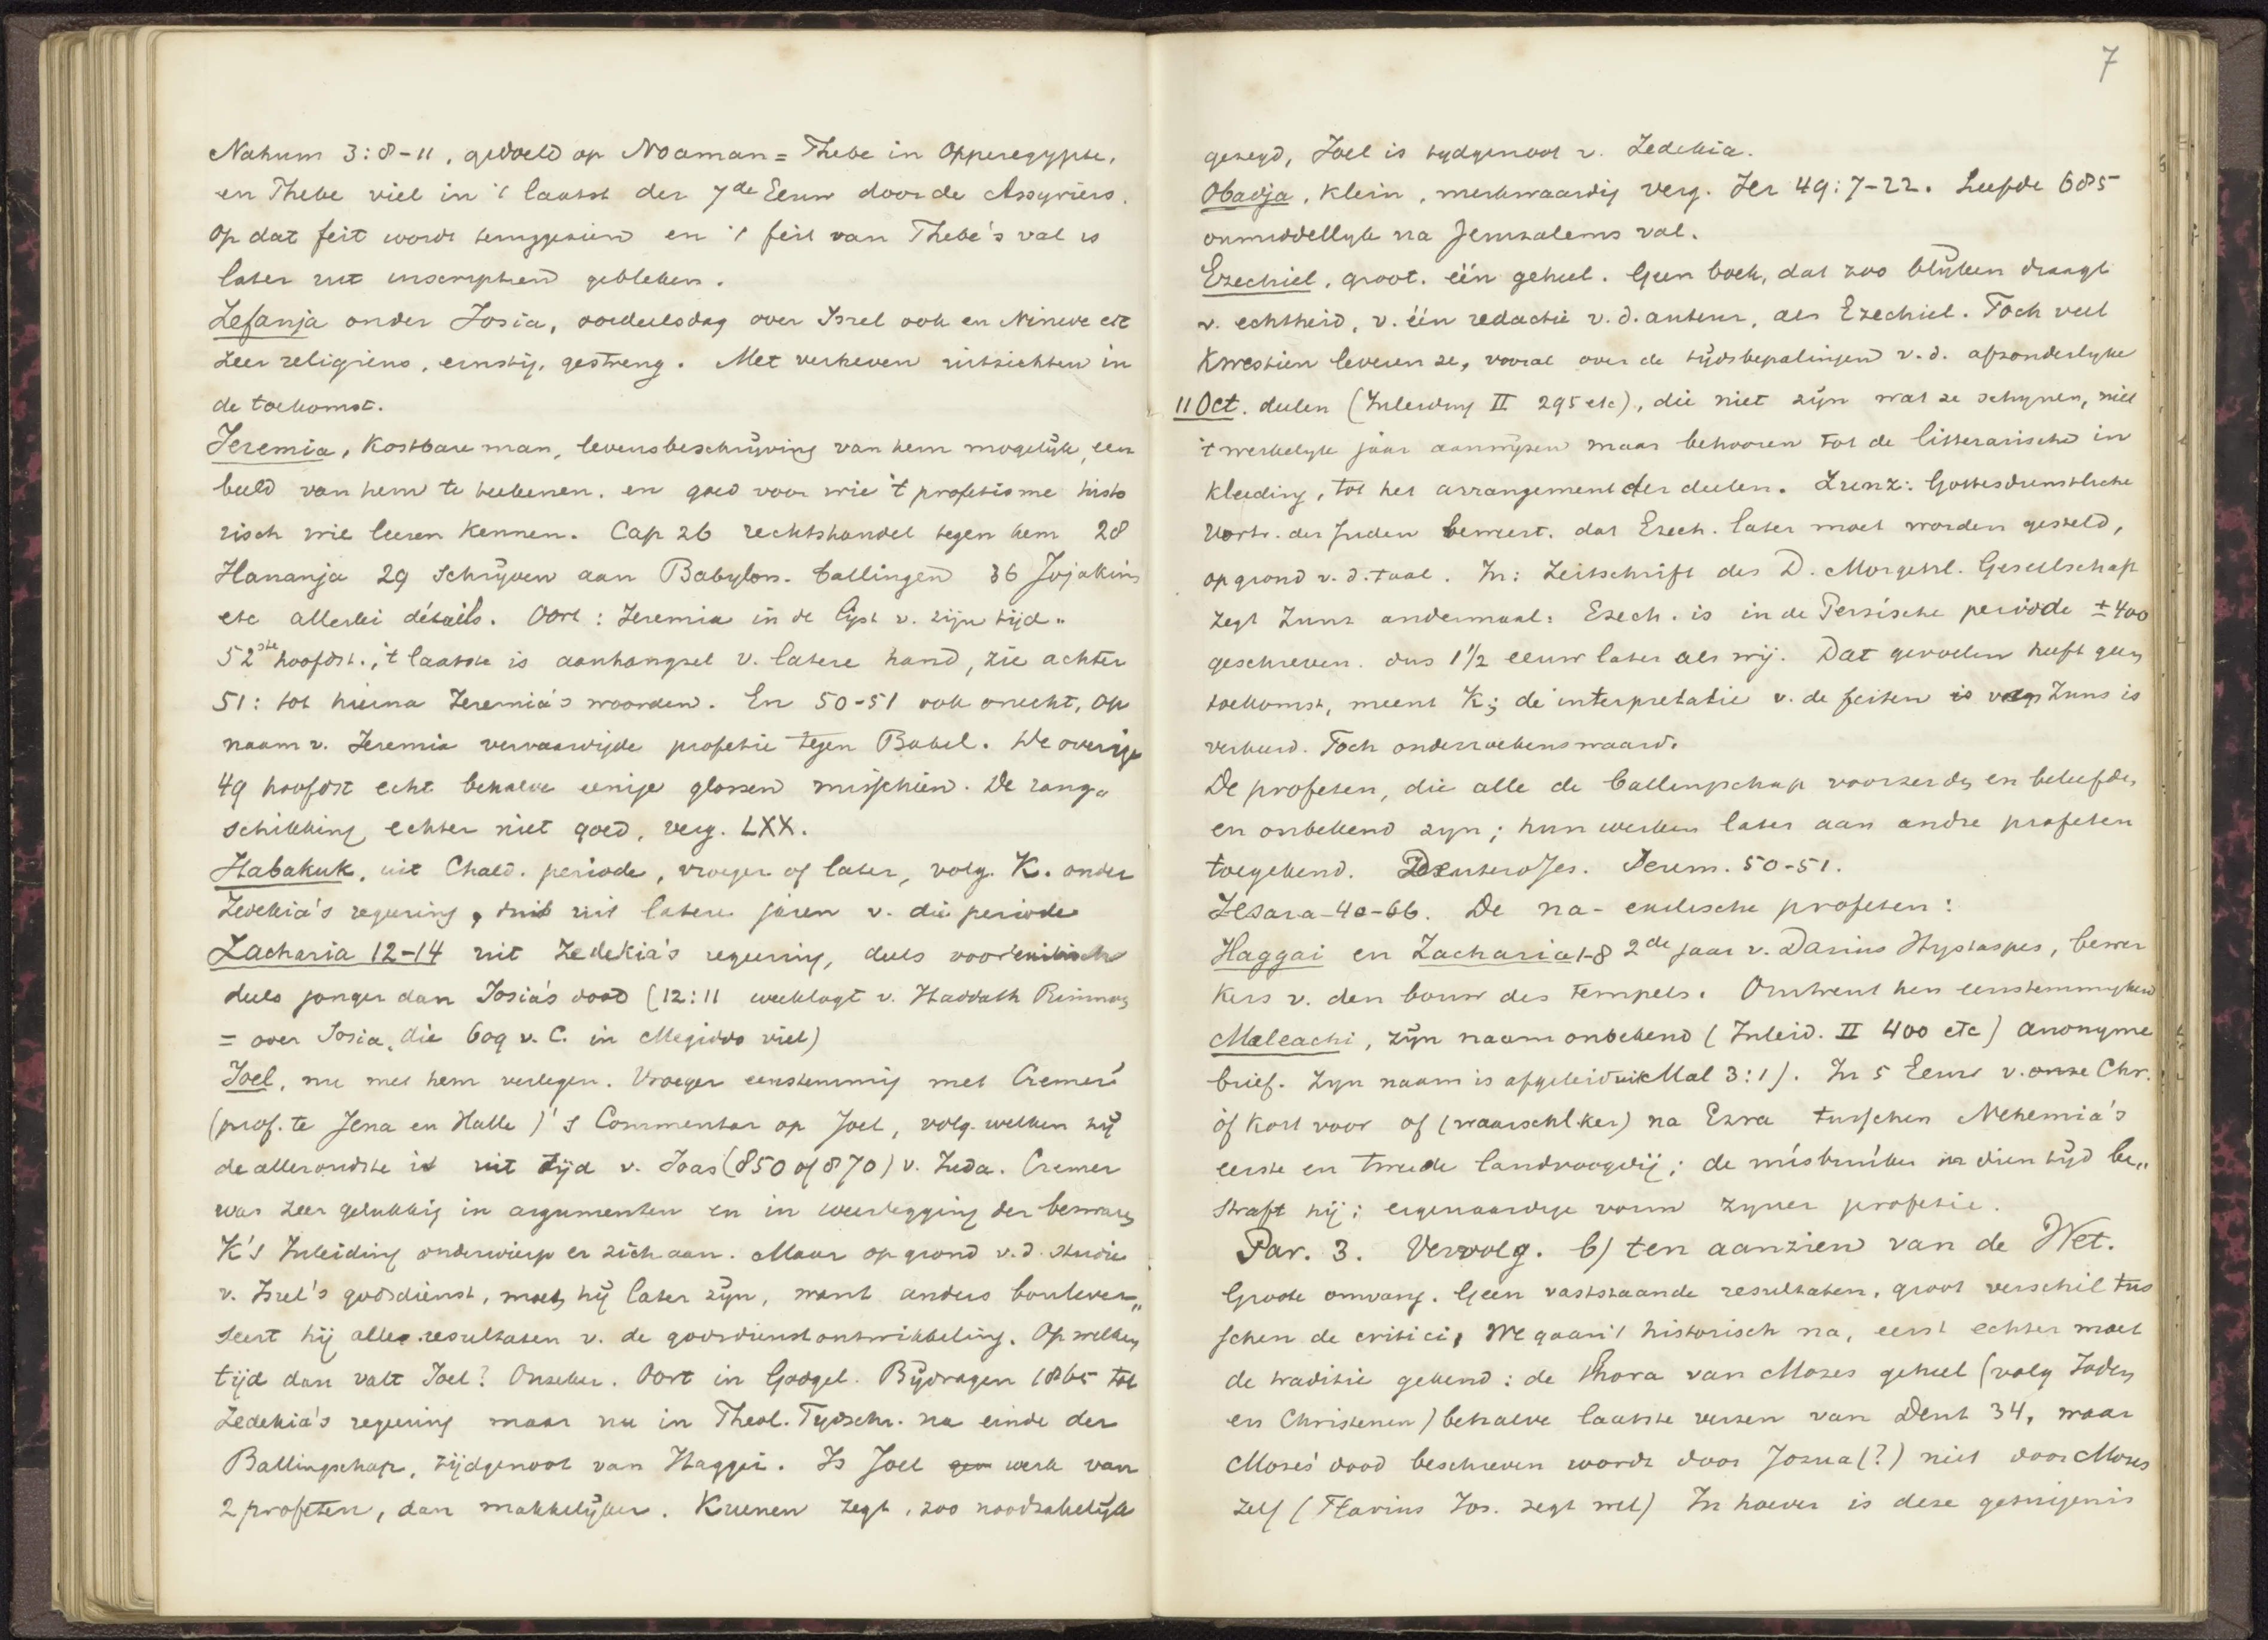 Nahum 3:8-11, gedoeld op Noaman = Thebe in Opperegypte,
en Thebe viel in 't laatst der 7de Eeuw door de Assyriers.
Op dat feit wordt teruggezien en 't feit van Thebe's val is
later uit inscriptien gebleken.
Zefanja onder Josia, oordeelsdag over Isrel ook en Nineve etc
zeer religieus, ernstig, gestreng. Met verheven uitzichten in
de toekomst.
Jeremia, kostbare man, levensbeschrijving van hem mogelijk, een
beeld van hem te teekenen. en goed voor wie 't profetisme histo
risch wil leeren kennen. Cap 26 rechtshandel tegen hem 28
Hananja 29 schrijven aan Babylon. ballingen 36 Jojakim
etc allerlei détails. Oort: Jeremia in de lijst v. zijn tijd..
52ste hoofdst., 't laatste is aanhangsel v. latere hand, zie achter
51: tot hierna Jeremia's woorden. En 50-51 ook onecht, op
naam v. Jeremia vervaardigde profetie tegen Babel. De overige
49 hoofdst echt behalve eenige glossen misschien. De rang"
schikking echter niet goed, verg. LXX.
Habakuk, uit Chald. periode, vroeger of later, volg. K. onder
Zedekia's regeering, uit latere jaren v. die periode
Zacharia 12-14 uit Zedekia's regeering, deels voorexilisch
deels jonger dan Josia's dood (12:11 weeklagt v. Haddath Rimmon
= over Josia, die 609 v. C. in Megiddo viel)
Joel, nu met hem verlegen. Vroeger eenstemmig met Cremer
(prof. te Jena en Halle)'s Commentar op Joel, volg. welken hij
de alleroudste is uit tijd v. Joas (850 of 870) v. Juda. Cremer
was zeer gelukkig in argumenten en in weerlegging der bezwaren
K's Inleiding onderwierp er zich aan. Maar op grond v.d. studie
v. Isrel's godsdienst, moet hij later zijn, want anders boulever"
seert hij alle resultaten v. de godsdienstontwikkeling. Op welken
tijd dan valt Joel? Onzeker. Oort in Godgel. Bijdragen 1865 tot
Zedekia's regeering maar nu in Theol. Tydschr. na einde der
Ballingschap, tijdgenoot van Haggai. Is Joel werk van
2 profeten, dan makkelijker. Kuenen zegt, zoo noodzakelijk
7
gezegd, Joel is tydgenoot v. Zedekia.
Obadja, klein, merkwaardig verg. Jer 49:7-22. Leefde 585
onmiddellyk na Jeruzalems val.
Ezechiel, groot. één geheel. Geen boek, dat zoo blijken draagt
v. echtheid, v. één redactie v.d. auteur, als Ezechiel. Toch veel
kwestien leveren ze, vooral over de tijdsbepalingen v.d. afzonderlyke
11 Oct. deelen (Inleiding II 295 etc), die niet zijn wat ze schynen, niet
't werkelyk jaar aanwijzen maar behooren tot de litterarische in
kleeding, tot het arrangement der deelen. Zunz: Gottesdienstliche
Vortr. der Juden beweert. dat Ezech. later moet worden gesteld,
op grond v.d. taal. In: Zeitschrift des D. Morgenl. Gesellschaft
zegt Zunz andermaal: Ezech. is in de Perzische periode ± 400
geschreven. dus 1½ eeuw later als wij. Dat gevoelen heeft geen
toekomst, meent K; de interpretatie v. de feiten volg Zuns is
verkeerd. Toch onderzoekenswaard.
De profeten, die alle de ballingschap voorzeiden en beleefden
en onbekend zyn; hun werken later aan andre profeten
toegekend. DeuteroJes. Jerem. 50-51.
Jesara-40-66. De na-exilische profeten:
Haggai en Zacharia 1-8 2de jaar v. Darius Hystaspes, bewer
kers v. den bouw des tempels. Omtrent hen eenstemmigheid
Maleachi, zijn naam onbekend (Inleid. II 400 etc) anonyme
brief. Zyn naam is afgeleid uit Mal 3:1). In 5 Eeuw v. onze Chr.
òf kort voor of (waarschl.ker) na Ezra tusschen Nehemia's
eerste en tweede landvoogdij; de misbruiken in dien tijd be"
straft hij; eigenaardige vorm zyner profetie.
Par. 3. Vervolg. b) ten aanzien van de Wet.
Groote omvang. Geen vaststaande resultaten, groot verschil tus
schen de critici, We gaan 't historisch na, eerst echter moet
de traditie gekend: de Thora van Mozes geheel (volg Joden
en Christenen) behalve laatste verzen van Deut 34, waar
Mozes' dood beschreven wordt door Jozua(?) niet door Mozes
zelf (Flavius Jos. zegt wel) In hoever is deze getuigenis